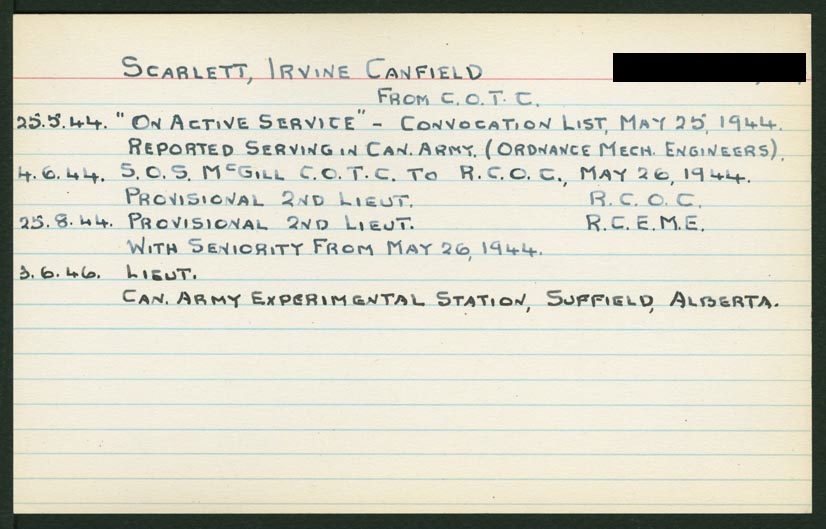 SCARLETT, IRVINE CANFIELD
FROM C.O.T.C.
25.5.44. "ON ACTIVE SERVICE" - CONVOCATION LIST, MAY 25, 1944.
REPORTED SERVING IN CAN. ARMY. (ORDNANCE MECH. ENGINEERS).
4.6.44. S.O.S. McGILL C.O.T.C. TO R.C.O.C., MAY 26, 1944.
PROVISIONAL 2ND LIEUT. R.C.O.C.
25.8.44. PROVISIONAL 2ND LIEUT. R.C.E.M.E.
WITH SENIORITY FROM MAY 26, 1944.
3.6.46. LIEUT.
CAN. ARMY EXPERIMENTAL STATION, SUFFIELD, ALBERTA.